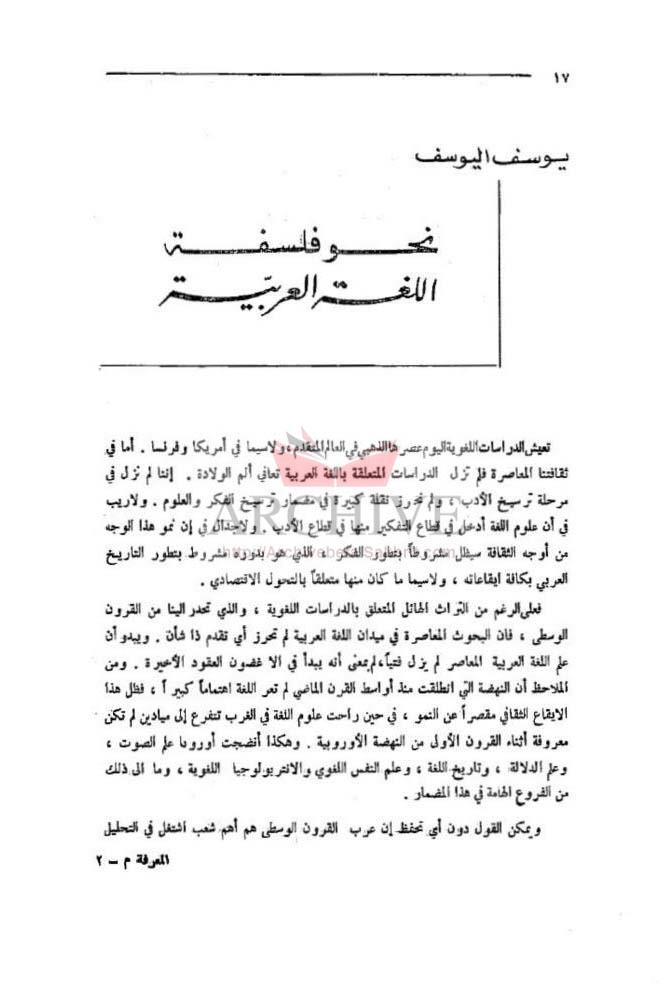 ١٧
يوسف اليوسف
نحو فلسفة
اللغة العربيّة
تعيش الدراسات اللغوية اليوم عصرها الذهبي في العالم المتقدم، ولاسيما في أمريكا وفرنسا . أما في
ثقافتنا المعاصرة فلم تزل الدراسات المتعلقة باللغة العربية تعاني ألم الولادة . إننا لم نزل في
مرحلة ترسيخ الأدب ، ولم نحرز نقلة كبيرة في مضمار ترسيخ الفكر والعلوم . ولاريب
ARCHIVE
في أن علوم اللغة أدخل في قطاع التفكير منها في قطاع الأدب . ولاجدال في إن نمو هذا الوجه
من أوجه الثقافة سيظل مشروطاً بتطور الفكر ، الذي هو بدوره مشروط بتطور التاريخ
العربي بكافة ايقاعاته ، ولاسيما ما كان منها متعلقاً بالتحول الاقتصادي .
فعلى الرغم من التراث الهائل المتعلق بالدراسات اللغوية ، والذي تحدر الينا من القرون
الوسطى ، فان البحوث المعاصرة في ميدان اللغة العربية لم تحرز أي تقدم ذا شأن . ويبدو أن
علم اللغة العربية المعاصر لم يزل فتياً، لم بمعنى أنه يبدأ في الا غضون العقود الأخيرة . ومن
الملاحظ أن النهضة التي انطلقت منذ أواسط القرن الماضي لم تعر اللغة اهتماماً كبيراً ، فظل هذا
الايقاع الثقافي مقصراً عن النمو ، في حين راحت علوم اللغة في الغرب تتفرع إلى ميادين لم تكن
معروفة أثناء القرون الأولى من النهضة الأوروبية . وهكذا أنضجت أوروبا علم الصوت ،
وعلم الدلالة ، وتاريخ اللغة ، وعلم النفس اللغوي والانتربولوجيا اللغوية ، وما الى ذلك
من الفروع الهامة في هذا المضمار .
ويمكن القول دون أي تحفظ إن عرب القرون الوسطى هم أهم شعب اشتغل في التحليل
المعرفة م – ٢